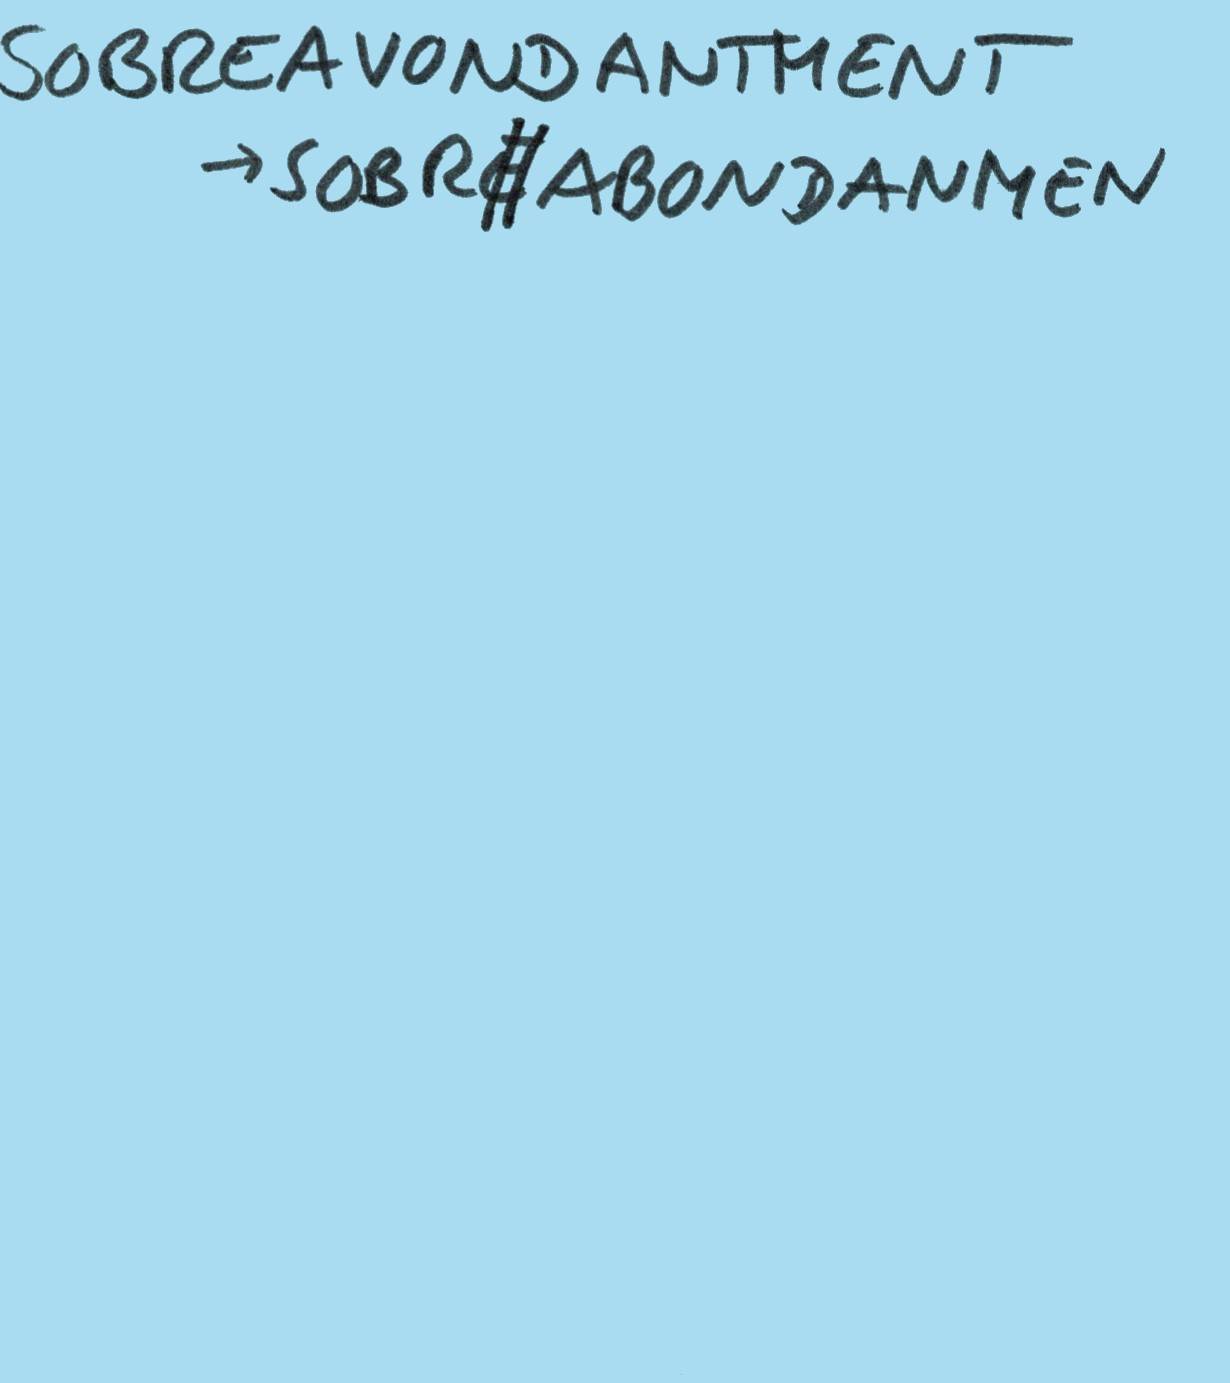 SOBREAVONDANTMENT
→SOBRABONDANMEN